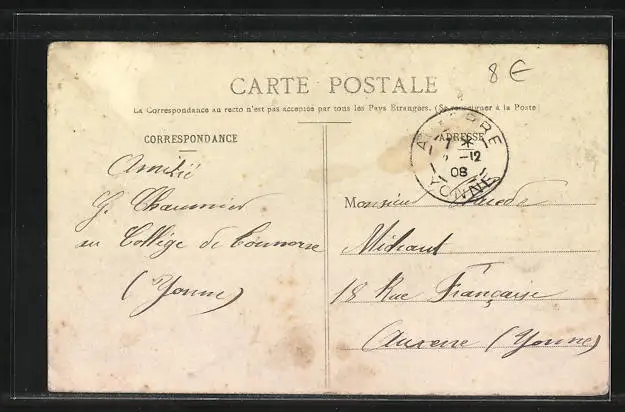 8 €
CARTE POSTALE
La Correspondance au recto n'est pas acceptée par tous les Pays Etrangers. (Se renseigner à la Poste)
CORRESPONDANCE
ADRESSE
AUXERRE
-12
08
YONNE
Amitié
G. Chaumier
au Collège de Tonnerre
(Yonne)
Monsieur
Michaut
18 Rue Française
Auxerre (Yonne)